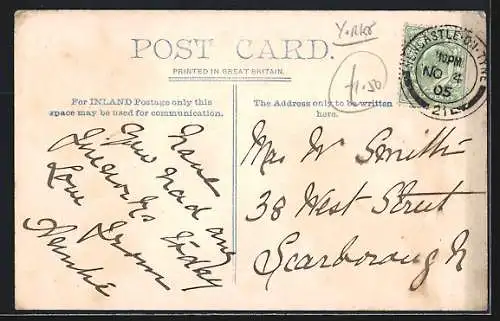 Yorks
POST CARD.
PRINTED IN GREAT BRITAIN.
£1.50
NEWCASTLE-ON-TYNE
10PM
NO 4
05
For INLAND Postage only this
space may be used for communication.
The Address only to be written
here.
Have
you had any
fireworks today
Love from
Mrs W Smith
38 West Street
Scarborough